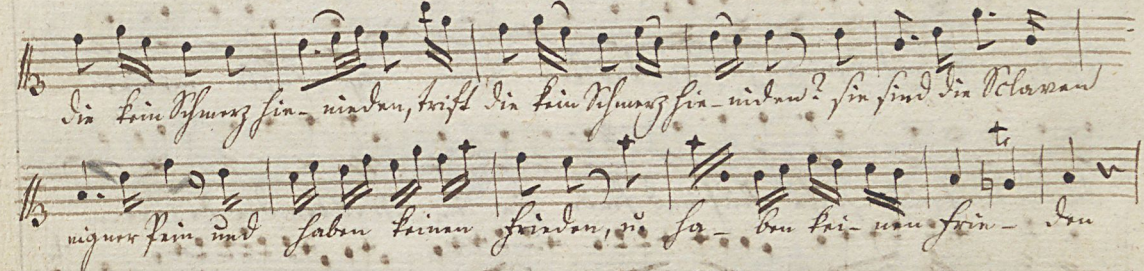 die kein Schmerz hie- nieden, trift die kein Schmerz hie- niden? sie sind die Sclaven
eigner Pein und haben keinen Frieden, u. ha- ben kei- nen Frie- den